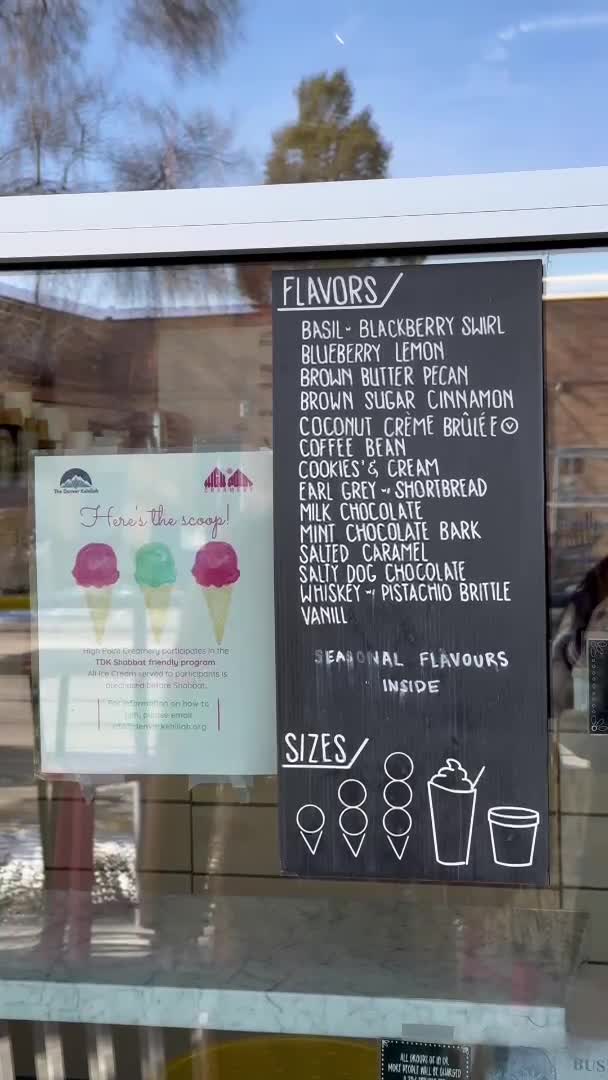 FLAVORS
BASIL - BLACKBERRY SWIRL
BLUEBERRY LEMON
BROWN BUTTER PECAN
BROWN SUGAR CINNAMON
COCONUT CRÈME BRÛLÉE Ⓥ
COFFEE BEAN
COOKIES & CREAM
EARL GREY w/ SHORTBREAD
MILK CHOCOLATE
MINT CHOCOLATE BARK
SALTED CARAMEL
SALTY DOG CHOCOLATE
WHISKEY w/ PISTACHIO BRITTLE
VANILL
SEASONAL FLAVOURS
INSIDE
SIZES
The Denver Kehillah
HIGH POINT
CREAMERY
Here's the scoop!
High Point Creamery participates in the
TDK Shabbat friendly program
All Ice Cream served to participants is
purchased before Shabbat.
For information on how to
join, please email
info@denverkehillah.org
ALL GROUPS OF 10 OR
MORE PEOPLE WILL BE CHARGED
BUS